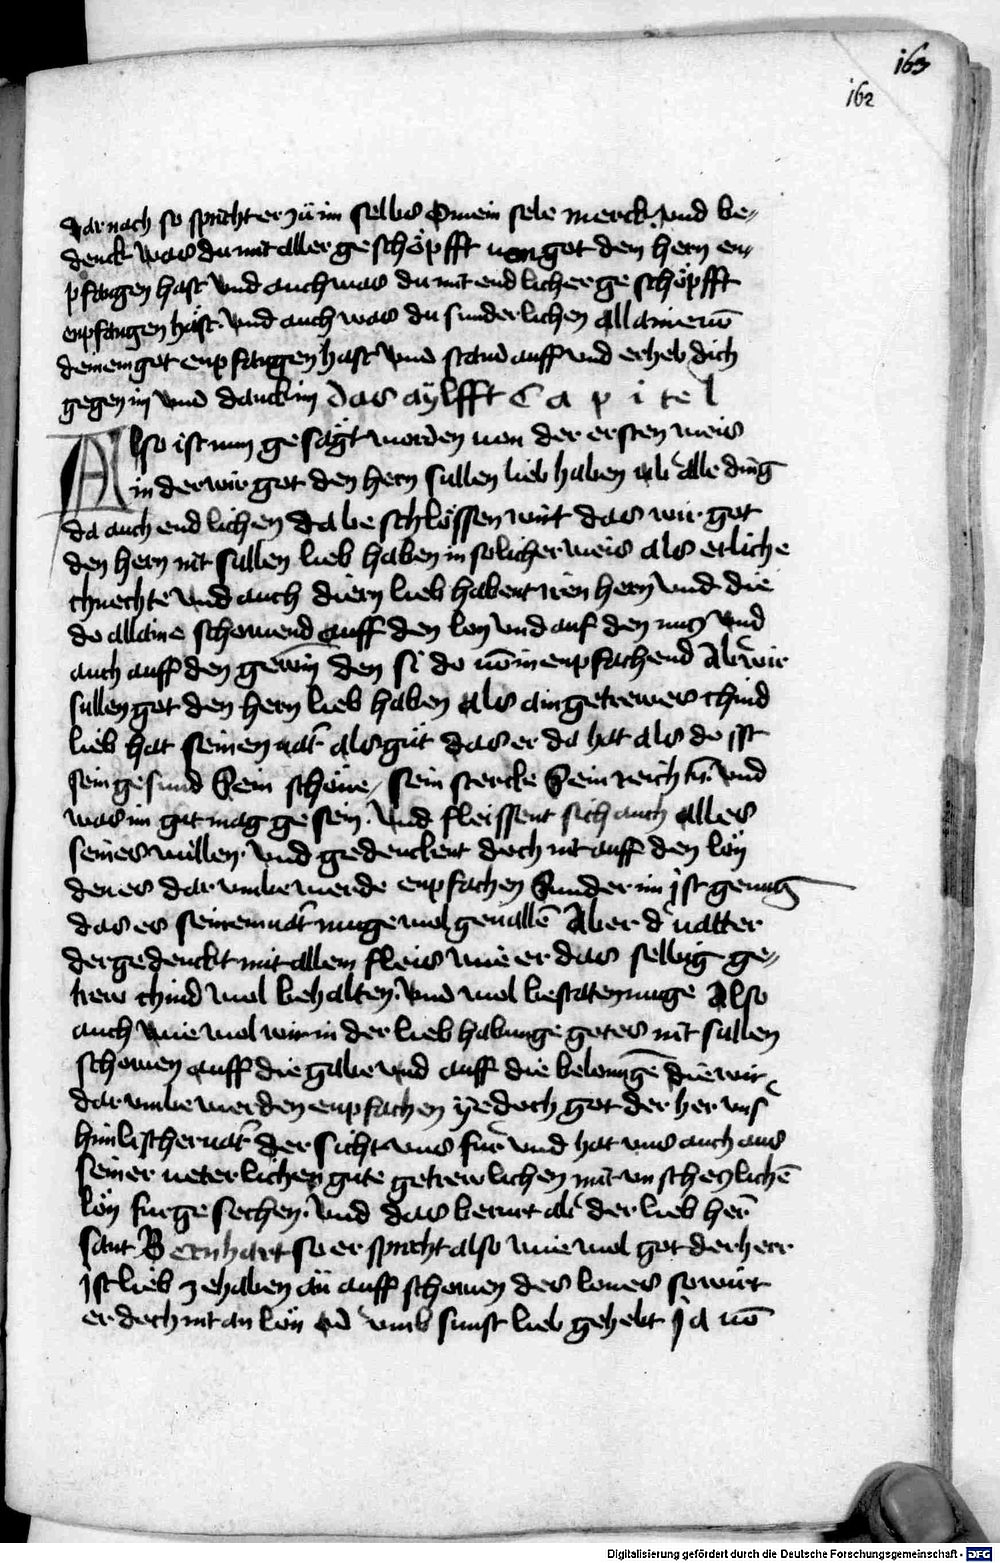 163
162
Darnach so spricht er zü im selbs O mein sele merck und be-
denck was du mit aller geschöpfft von got dem hern en-
pfangen hast und auch was du mit endlicher geschöpfft
enpfangen hast. und auch was du sunderlichen allain vō
deinem got enpfangen hast und stand auff und erheb dich
gegen im und danck im Das aÿlfft Capitel
Also ist nun gesagt worden von der ersten weis
in der wir got den hern sullen lieb haben alle ding
da auch endlichen da beschlossen wirt das wir got
den hern nit sullen lieb haben in solicher weis als etliche
chnechte und auch diern lieb habent iren hern und die
do allaine schowend auff den lon und auf den nucz und
auch auff den gewin den si do vō im enpfachend Ab wir
sullen got den hern lieb haben als ain getrewes chind
lieb hat seinen vat als güt das er do hat als do ist
sein gesund Sein schöne, sein stercke Sein reich und
was im güt mag gesein. und fleissent sich auch alles
seines willen. und gedenckent doch nit auff den lön
den es dar umbe werde enpfachen Sunder im ist genug
das es seinem vat muge wol gevallē Aber d vatter
der gedenckt mit allem fleis wie er das selbig ge-
trew chind wol behalten. und wol bestaten muge Also
auch wie wol wir in der lieb habunge gotes nit sullen
schowen auff die gabe und auff die belonūge die wir
dar umbe werden enpfachen ÿedoch got der her uns
himlischer vat der sicht uns für und hat uns auch aus
seiner veterlichen güte getrewlichen mit
lön fürgesechen. und das berürt der lieb her
sant Bernhart so er spricht also wie wol got der herr
ist lieb ze haben an auff schowen des lones so wirt
er doch nit an lön umb sunst lieb gehebt Ja vō
Digitalisierung gefördert durch die Deutsche Forschungsgemeinschaft - DFG